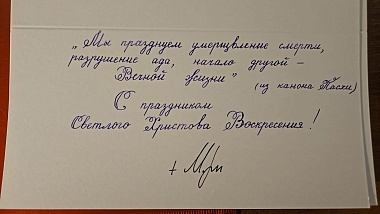 „Мы празднуем умерщвление смерти,
разрушение ада, начало другой –
Вечной жизни"
(из канона Пасхи)
С праздником
Светлого Христова Воскресения!
+